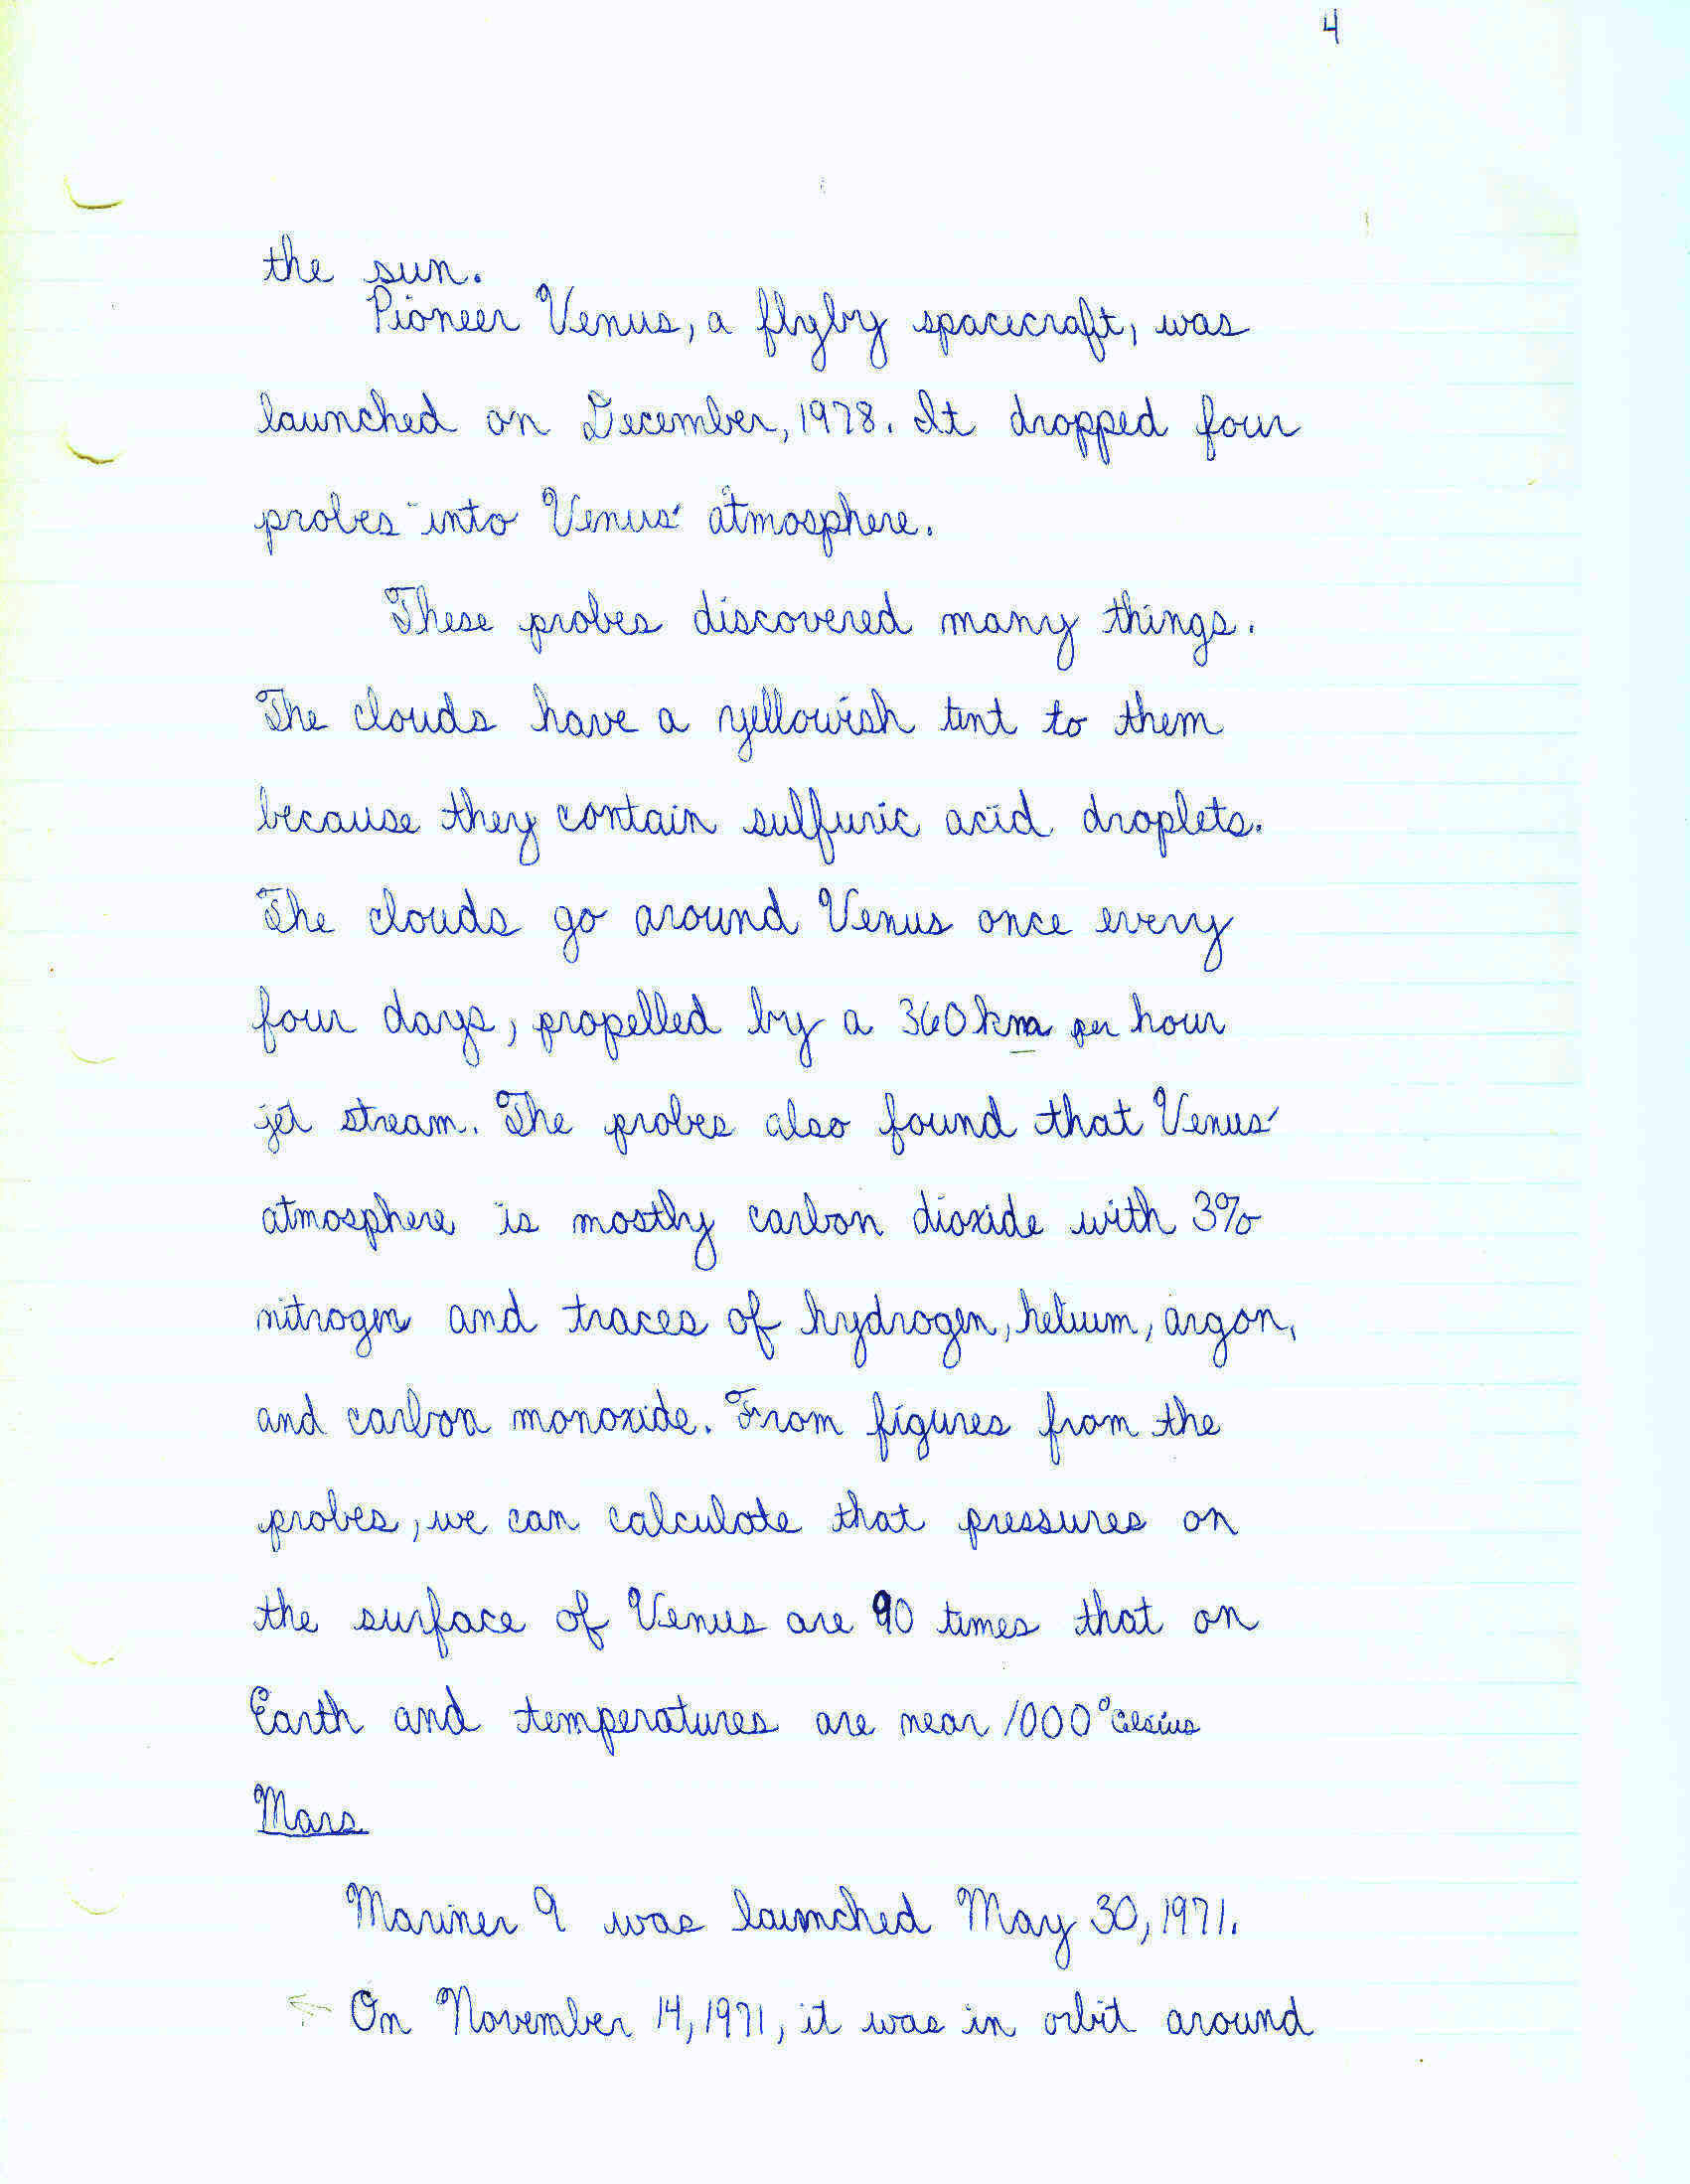 4
the sun.
Pioneer Venus, a flyby spacecraft, was
launched on December, 1978. It dropped four
probes into Venus' atmosphere.
These probes discovered many things.
The clouds have a yellowish tint to them
because they contain sulfuric acid droplets.
The clouds go around Venus once every
four days, propelled by a 360 km per hour
jet stream. The probes also found that Venus'
atmosphere is mostly carbon dioxide with 3%
nitrogen and traces of hydrogen, helium, argon,
and carbon monoxide. From figures from the
probes, we can calculate that pressures on
the surface of Venus are 90 times that on
Earth and temperatures are near 1000° Celsius
Mars
Mariner 9 was launched May 30, 1971.
On November 14, 1971, it was in orbit around